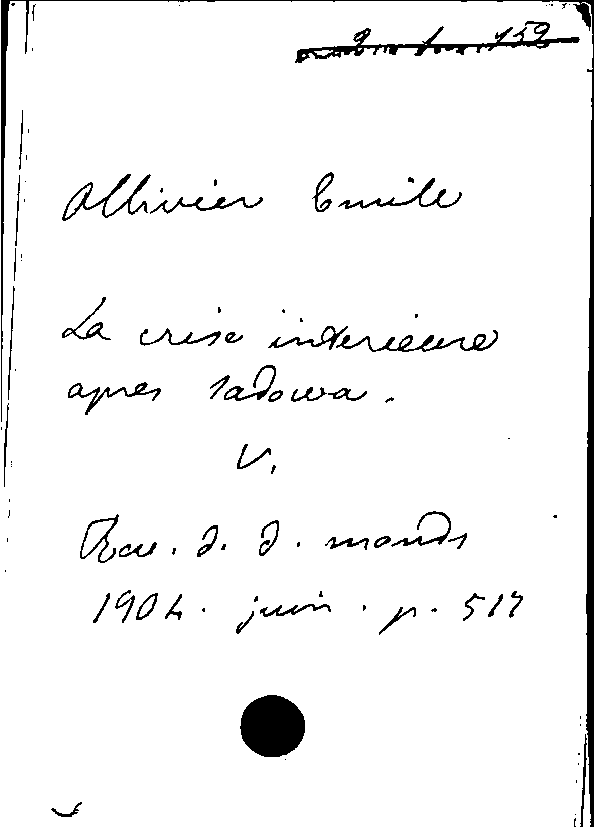 Ollivier Emile
La crise interieure
apres Sadowa.
V.
Rev. d. d. monds
1904. juin. p. 517